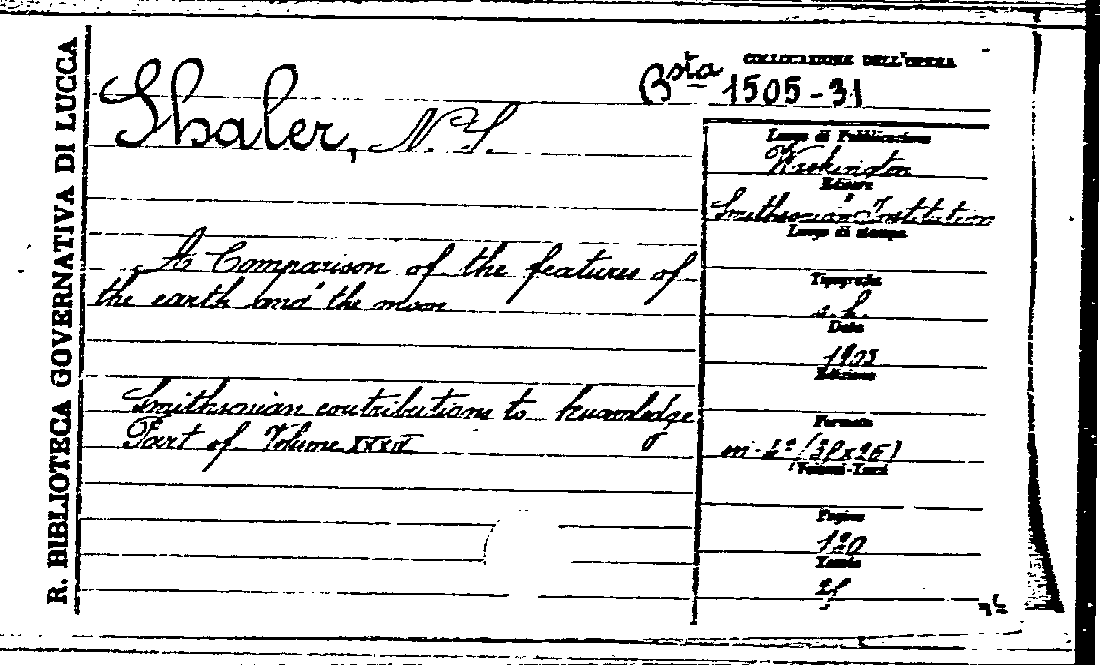 R. BIBLIOTECA GOVERNATIVA DI LUCCA
Shaler, N. S.
A Comparison of the features of
the earth and the moon
Smithsonian contributions to knowledge
Part of Volume XXXIV
COLLOCAZIONE DELL'OPERA
Bsta 1505-31
Luogo di Pubblicazione
Washington
Editore
Smithsonian Institution
Luogo di stampa
Tipografia
Data
1903
Edizione
Formato
in-4°
Volumi-Tomi
Pagine
130
Tavole